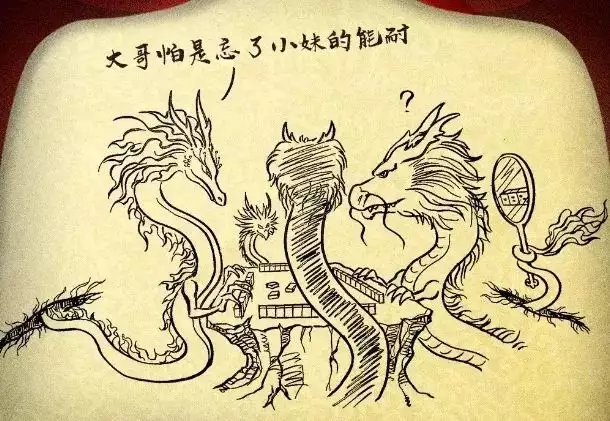 大哥怕是忘了小妹的能耐
?